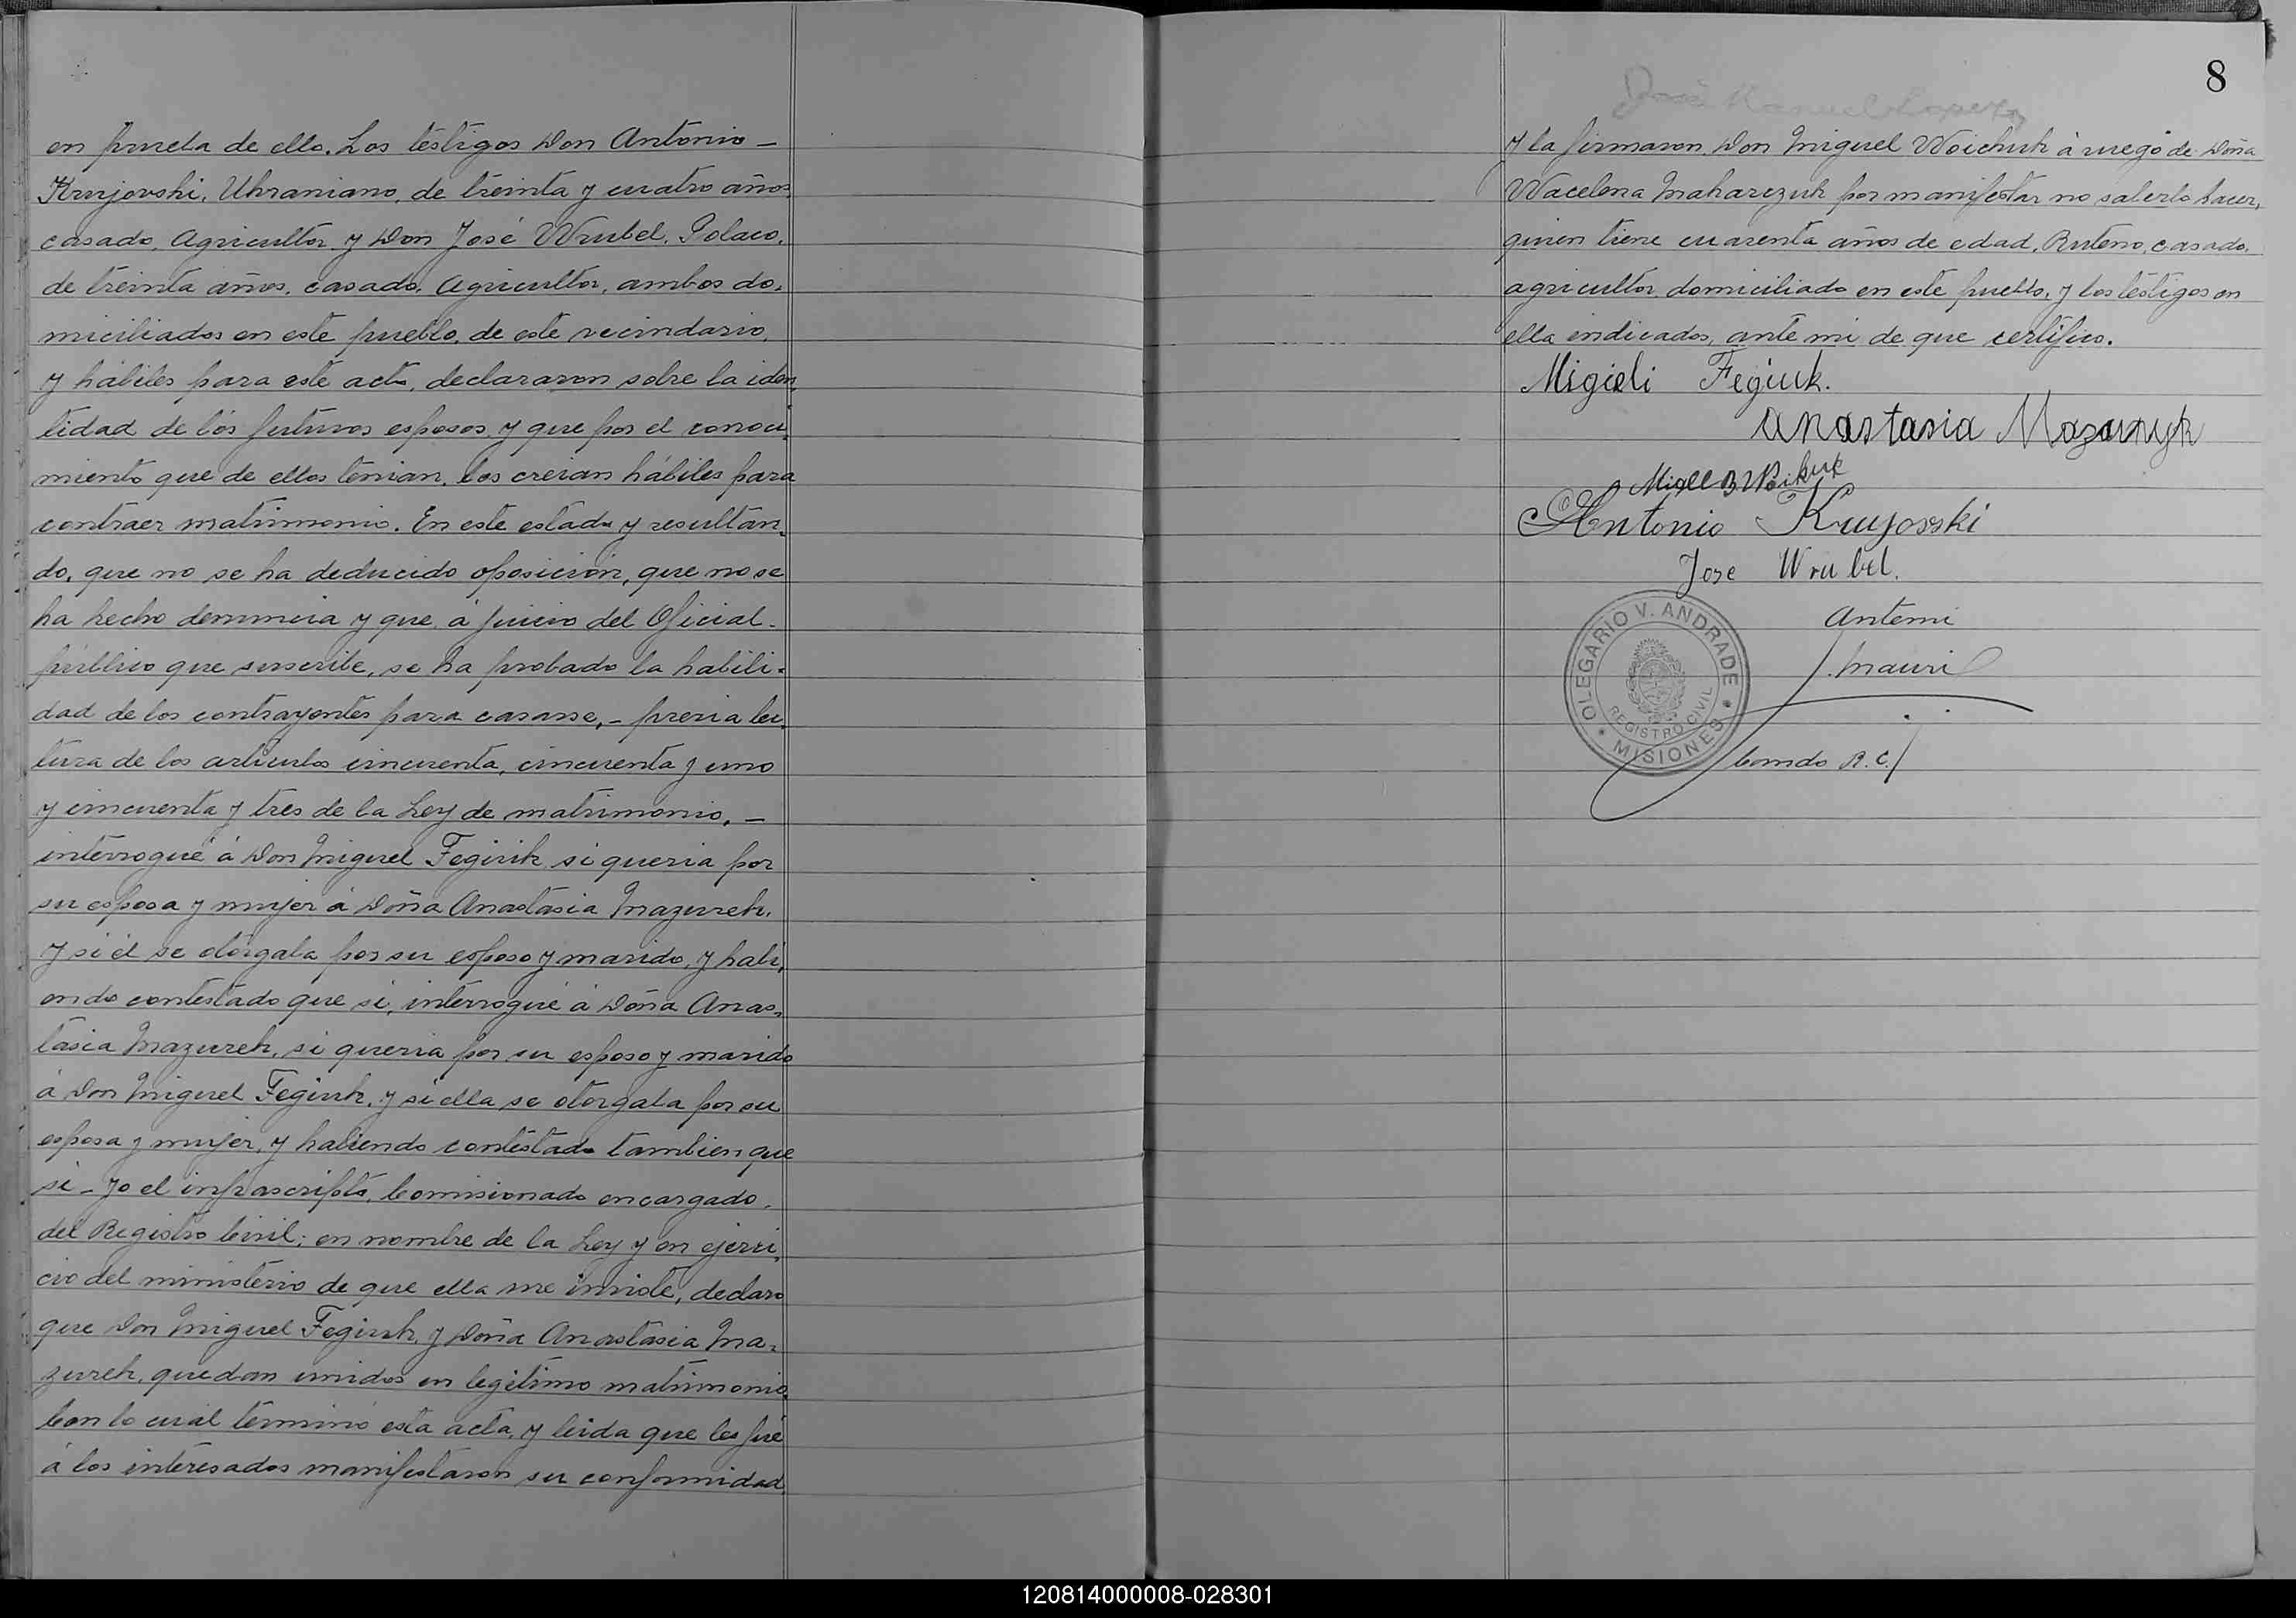 en prueba de ello. Los testigos Don Antonio —
Krujovski, Ukraniano, de treinta y cuatro años,
casado, Agricultor y Don José Wrubel, Polaco,
de treinta años, casado, Agricultor, ambos do-
miciliados en este pueblo, de este vecindario,
y hábiles para este acto, declararon sobre la iden-
tidad de los futuros esposos y que por el conoci-
miento que de ellos tenian, los creian hábiles para
contraer matrimonio. En este estado y resultan-
do, que no se ha deducido oposición, que no se
ha hecho denuncia y que á juicio del Oficial-
público que suscribe, se ha probado la habili-
dad de los contrayentes para casarse, - previa lec-
tura de los articulos cincuenta, cincuenta y uno
y cincuenta y tres de la Ley de matrimonio, —
interrogué á Don Miguel Fegiuk si queria por
su esposa y mujer á Doña Anastasia Mazurek,
y si él se otorgaba por su esposo y marido, y habi-
endo contestado que si, interrogué á Doña Anas-
tasia Mazurek, si queria por su esposo y marido
á Don Miguel Fegiuk, y si ella se otorgaba por su
esposa y mujer, y habiendo contestado tambien que
si - Yo el infrascripto, Comisionado encargado,
del Registro Civil; en nombre de la Ley y en ejerci-
cio del ministerio de que ella me inviste, declaro
que Don Miguel Fegiuk, y Doña Anastasia Ma-
zurek, quedan unidos en legitimo matrimonio,
Con lo cual terminó esta acta, y leida que les fué
á los interesados manifestaron su conformidad
8
José Manuel Lopez
y la firmaron, Don Miguel Woichuk á ruego de Doña
Wacelena Makarczuk por manifestar no saberlo hacer,
quien tiene cuarenta años de edad, Ruteno, casado,
agricultor, domiciliado en este pueblo, y los testigos en
ella indicados, ante mi de que certifico.
Migieli Fegiuk.
Anastasia Mazuryk
Antonio Krujosski
Jose Wrubel.
Antemi
OLEGARIO V. ANDRADE
REGISTRO CIVIL
MISIONES
Comdo R.C.
120814000008-028301